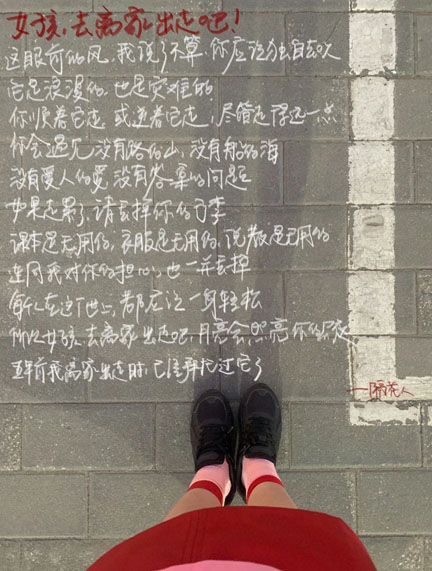 女孩，去离家出走吧！
这眼前的风，我说了不算，你应该独自去吹
它是浪漫的，也是灾难的
你顺着它走 或逆着它走，尽管走得远一点
你会遇见没有路的山，没有船的海
没有爱人的爱，没有答案的问题
如果走累了，请丢掉你的行李
课本是无用的，衣服是无用的，说教是无用的
连同我对你的担心，也一并丢掉
每人在这个世上，都应该一身轻松
所以女孩，去离家出走吧，月亮会照亮你的
年前我离家出走时，已经拜托过它了
——隔花人